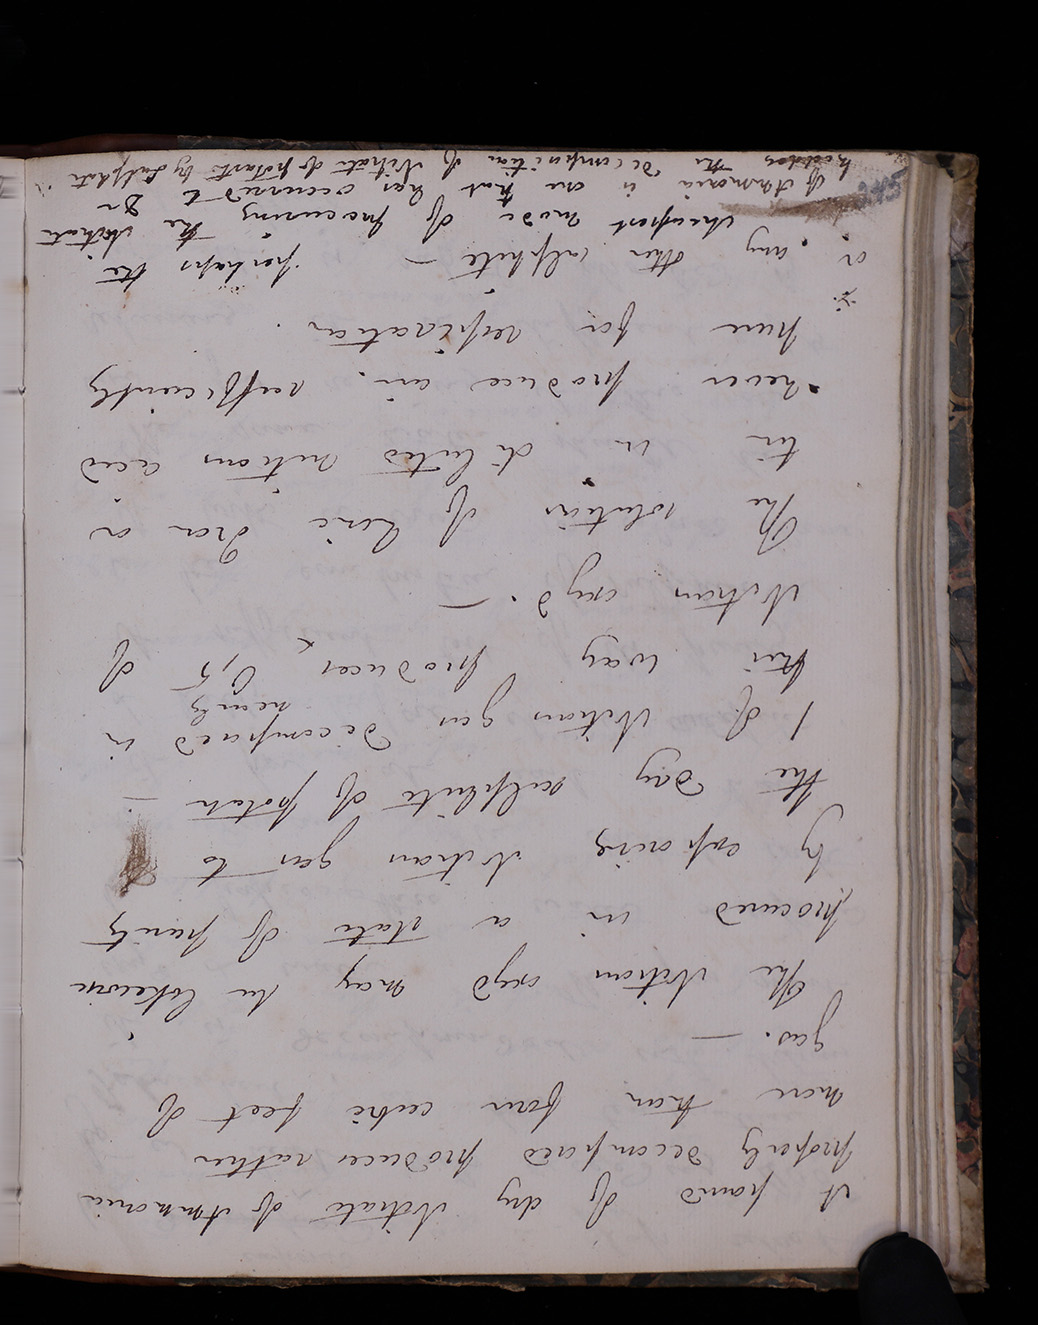 A pound of dry Nitrate of Ammonia
properly decomposed produces rather
more than four cubic feet of
gas. —
The Nitrous oxyd may be likewise
procured in a state of purity
by exposing Nitrous gas to
the dry sulphite of potash —
1 of Nitrous gas decomposed in
nearly
this way produces 0,5 of
Nitrous oxyd. —
The solution of Zinc Iron or
tin in diluted nitrous acid
never produce air sufficiently
pure for respiration.
or any other sulphite — perhaps the
cheapest mode of procuring the Nitrate
of Ammonia is one that has occurred to Dr
Beddoes the decomposition of Nitrate of potash by Sulphate